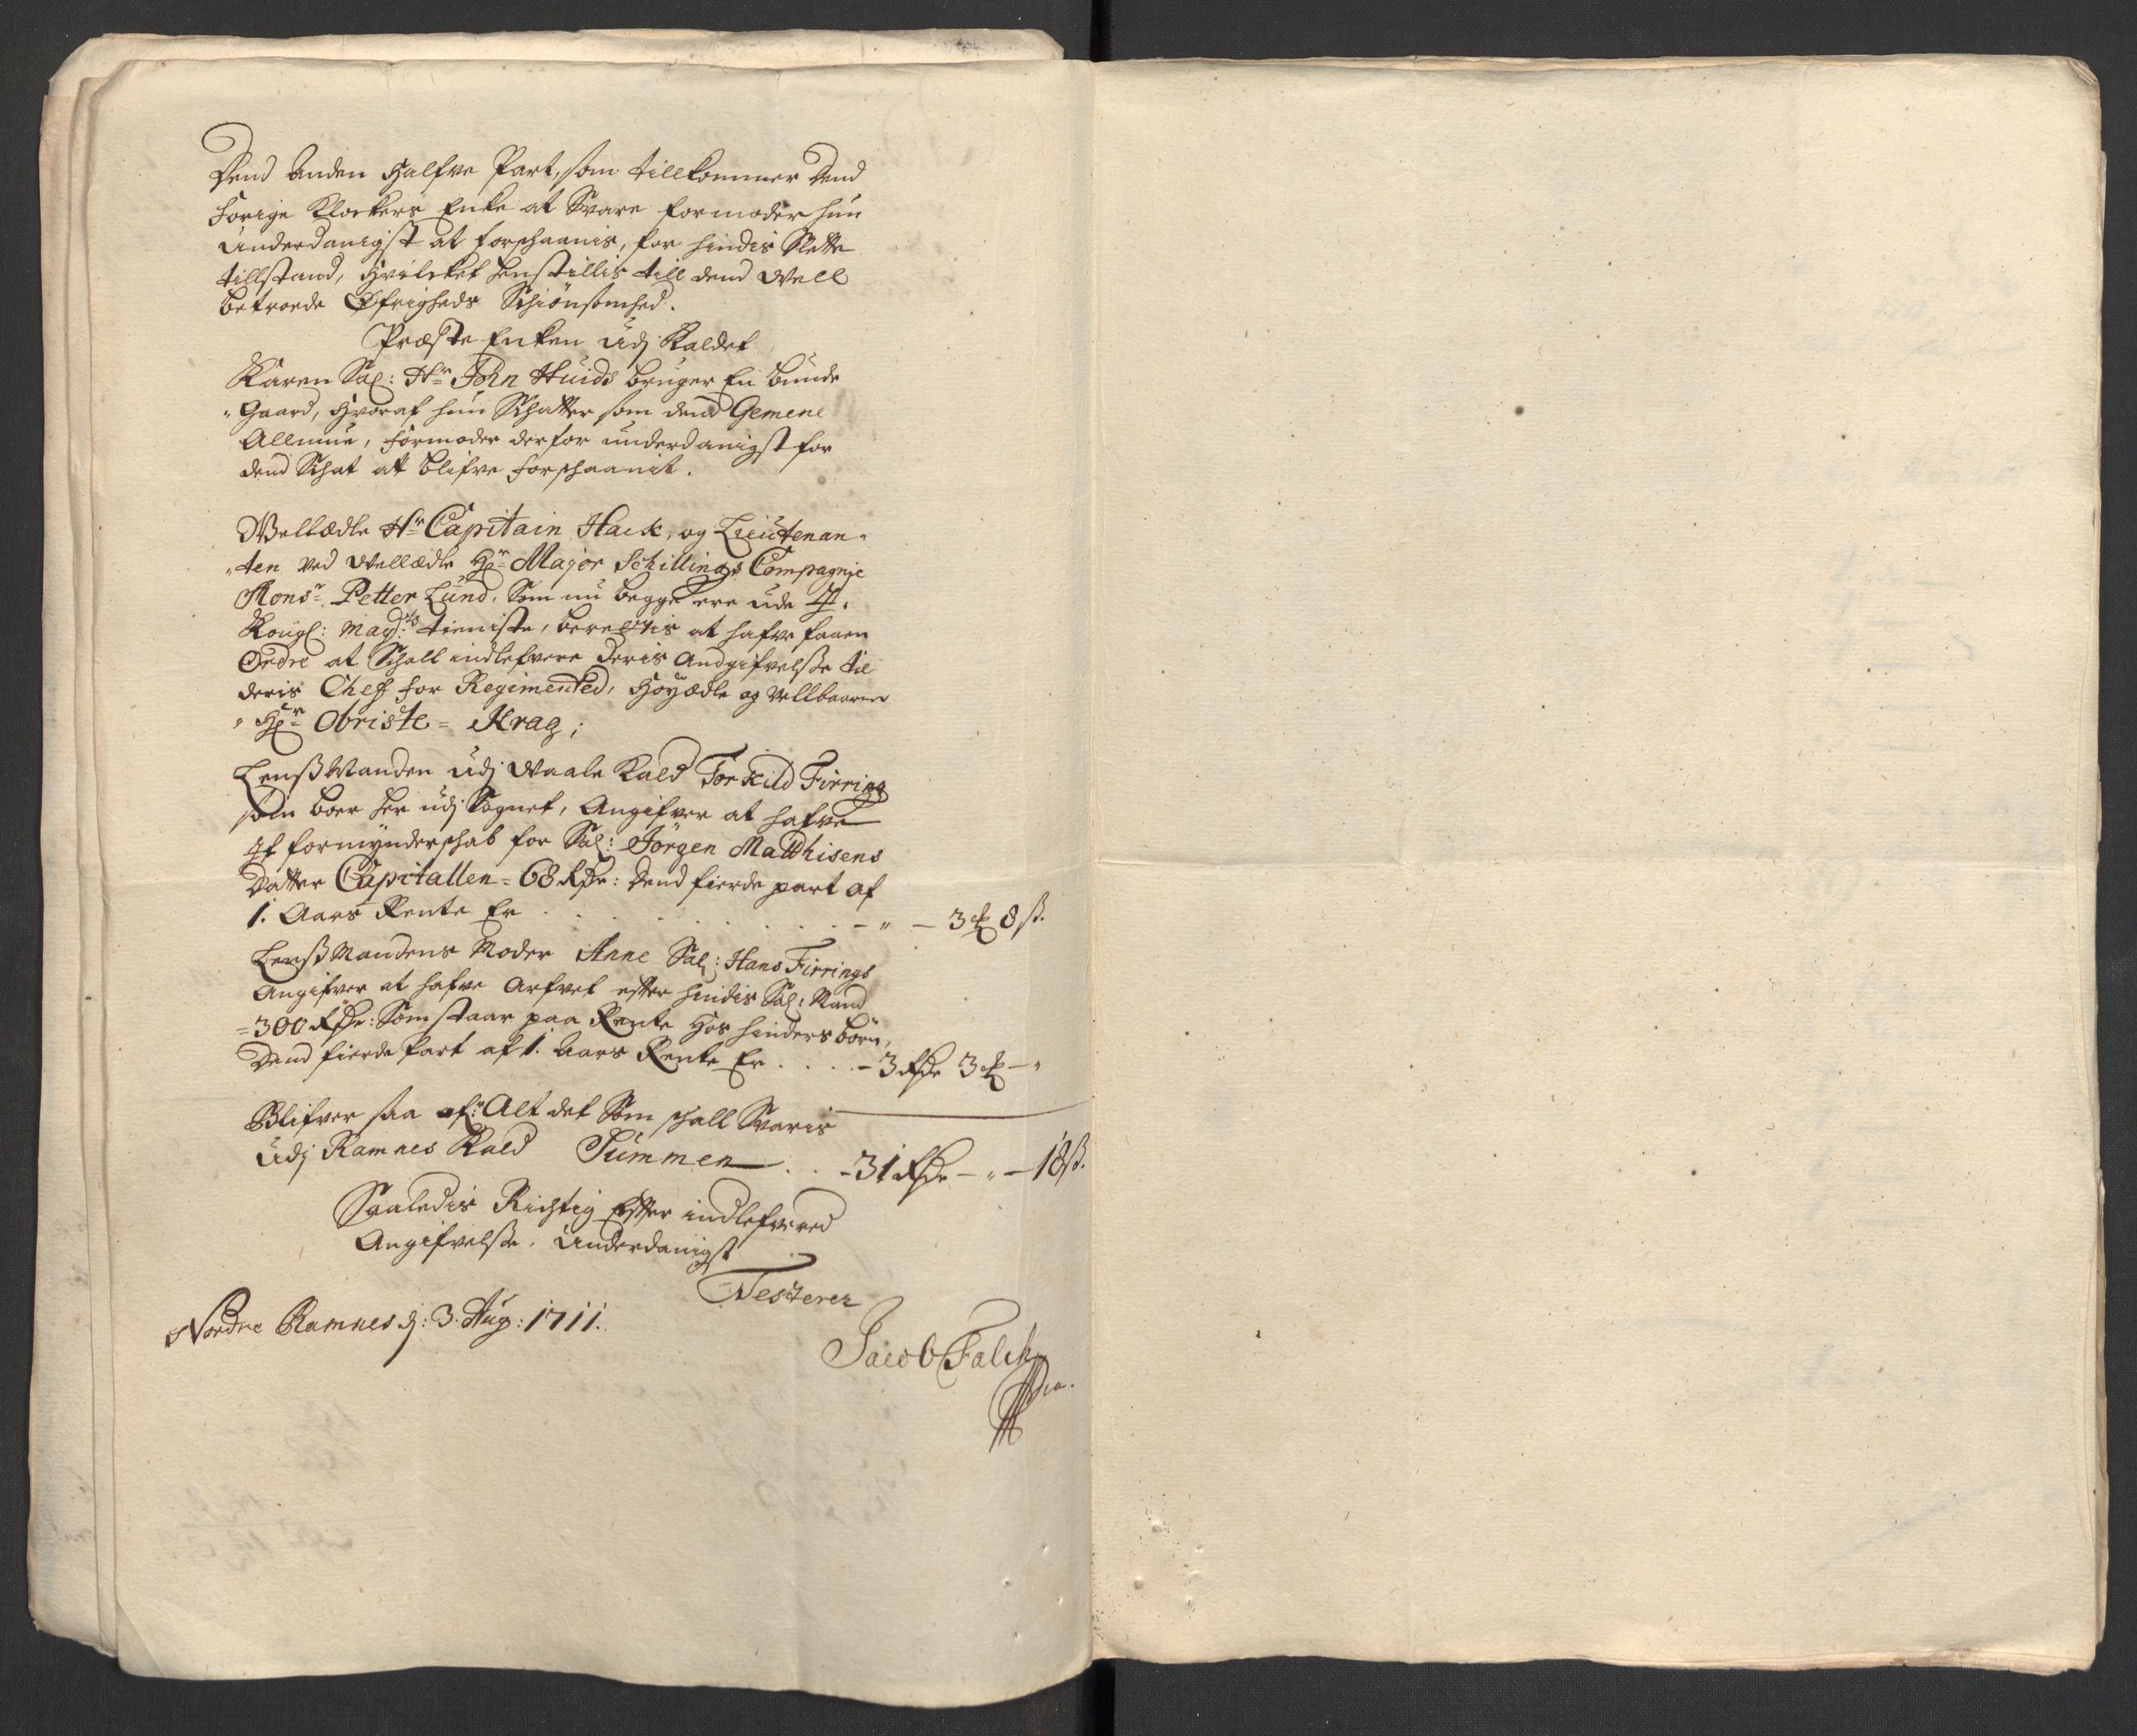 Dend Anden Halfve Part, som tillkommer Dend
forige Klockers Enke at Svare formoder hun
Underdanigst at forschaanis, for hindis Slette
tillstand, hvilcket henstillis till dend Well
betroede Øfrigheds Schiönsomhed.
Præste Enken Udj Kaldet
Karen Sal: Hr John Huids bruger En bunde
"Gaard, hvoraf hun Schatter som dend Gemene
Allmue, formoder derfor underdanigst for
dend Schat att blifve forschaanit.
Wellædle Hr Capitain Hack, og Lieutenan-
"ten ved Wellædle Hr Major Schillings Compagnie
Monsr Petter Lund. Som nu begge ere ude J.
Kongl: Mayts: tieniste, berettis at hafve faaen
Ordre at Schall indlefvere deris Andgifvelsse til
deris Chef for Regimented, Høyædle og Vellbaaren
"Hr Obriste = Krag;
Lenssmanden Udj Waale Kald Torkild Firring
som boer her udj Sognet, Angifver at hafve
It formynderschab for Sal: Jörgen Matthisens
Datter Capitallen = 68 Rdr: Dend fierde part af
1. Aars Rente Er . . . . . . . . . - " - 3 ℔ 8 ß.
Lenssmandens Moder Anne Sal: Hans Firrings
Angifver at hafve Arfvet effter hindis Sal: Mand
=300 Rdr: Som staar paa Rente hos hinders börn,
Dend fierde Part af 1. Aars Rente Er . . . . - 3 Rdr 3 ℔ - "
Blifver saa af Alt det Som schall Svaris
Udj Ramnes Kald Summen . . - 31 Rdr - " - 18 ß.
Saaledis Richtig Effter indlefvered
Angifvelsse. Underdanigst
Testerer
Nordre Ramnes d: 3. Aug: 1711.
Jacob Falch